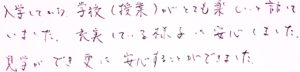 入学してから、学校(授業)がとても楽しいと話して
いました。充実している様子に安心しました。
見学ができ更に安心することができました。